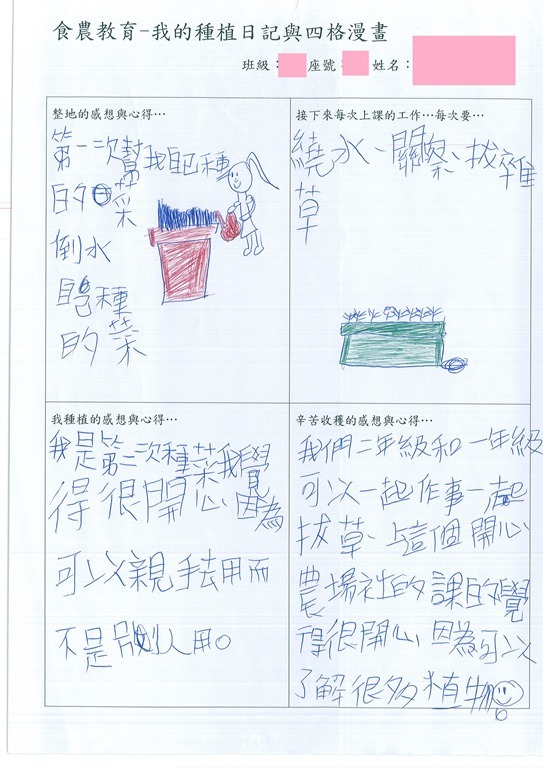 食農教育-我的種植日記與四格漫畫
班級： 座號： 姓名：
整地的感想與心得…
第一次幫我自己種
的菜
倒水
自己種
的菜
接下來每次上課的工作…每次要…
繞水、關察、拔雜
草
我種植的感想與心得…
我是第二次種菜我覺
得很開心因為
可以親手去用而
不是別人用。
辛苦收穫的感想與心得…
我們二年級和一年級
可以一起作事一起
拔草、上這個開心
農場社的課的覺
得很開心因為可以
了解很多植物